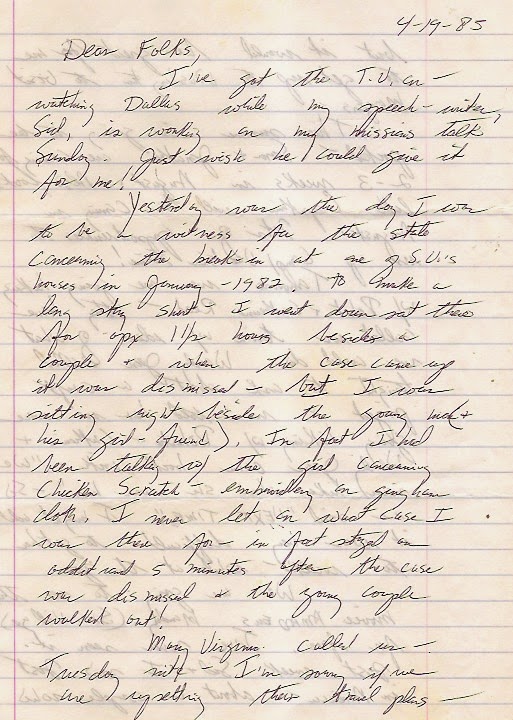 4-19-85
Dear Folks,
I've got the T.V. on -
watching Dallas while my speech-writer,
Sid, is working on my missions talk
Sunday. Just wish he could give it
for me!
Yesterday was the day I was
to be a witness for the state
concerning the break-in at one of S.U.'s
houses in January - 1982. To make a
long story short - I went down sat there
for apx 1 1/2 hours besides a
couple + when the case came up
it was dismissed - but I was
sitting right beside the young man (+
his girl-friend). In fact I had
been talking w/ the girl concerning
Chicken Scratch - embroidery on gingham
cloth. I never let on what case I
was there for - in fact stayed an
additional 5 minutes after the case
was dismissed + the young couple
walked out!
Mary Virginia called us -
Tuesday nite - I'm sorry if we
are upsetting their travel plans -